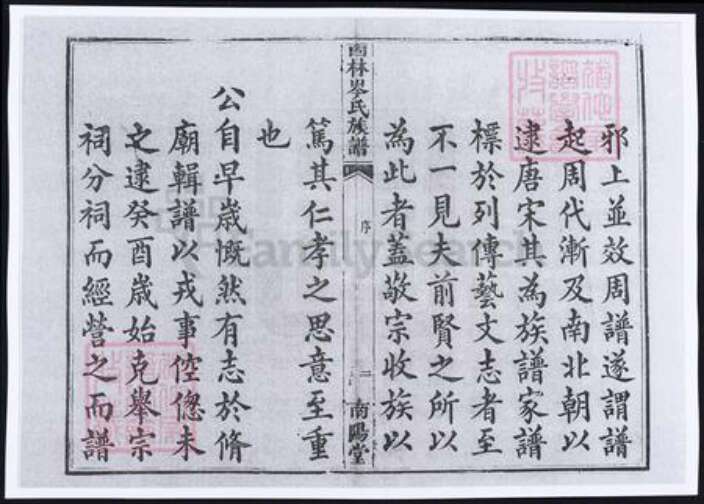 邪上並效周譜遂謂譜
起周代漸及南北朝以
逮唐宋其為族譜家譜
標於列傳藝文志者至
不一見夫前賢之所以
為此者蓋敬宗收族以
西林岑氏族譜
序
二
南陽堂
篤其仁孝之思意至重
也
公自早歲慨然有志於脩
廟輯譜以戎事倥傯未
之逮癸酉歲始克舉宗
祠分祠而經營之而譜
FamilySearch